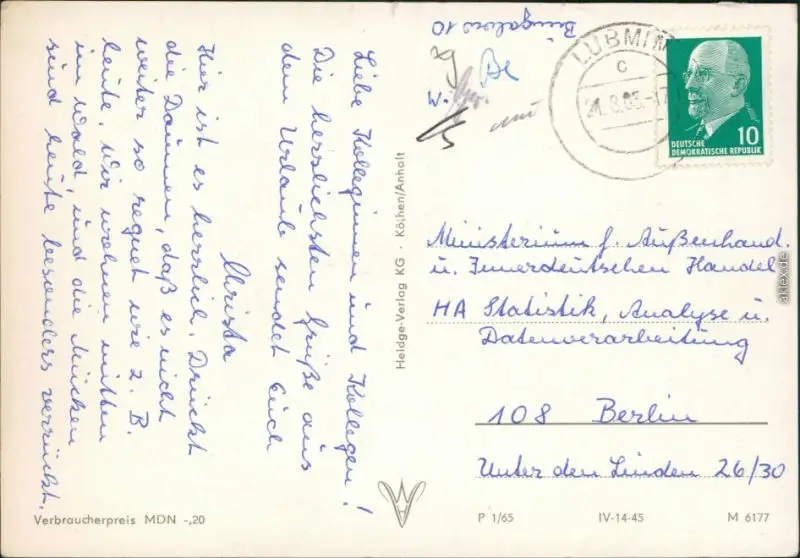 Liebe Kolleginnen und Kollegen!
Die herrlichsten Grüße aus
dem Urlaub sendet Euch
Christa
Hier ist es herrlich. Drückt
die Daumen, daß es nicht
weiter so regnet wie z. B.
heute. Wir wohnen mitten
im Wald, und die Mücken
sind heute besonders verrückt.
Verbraucherpreis MDN -,20
Heldge-Verlag KG · Köthen/Anholt
10
W.
LUBMIN
C
DEUTSCHE
DEMOKRATISCHE REPUBLIK
10
Ministerium f. Außenhand.
u. Innerdeutschen Handel
HA Statistik, Analyse u.
Datenverarbeitung
108 Berlin
Unter den Linden 26/30
P 1/65 IV-14-45 M 6177
aklex.de